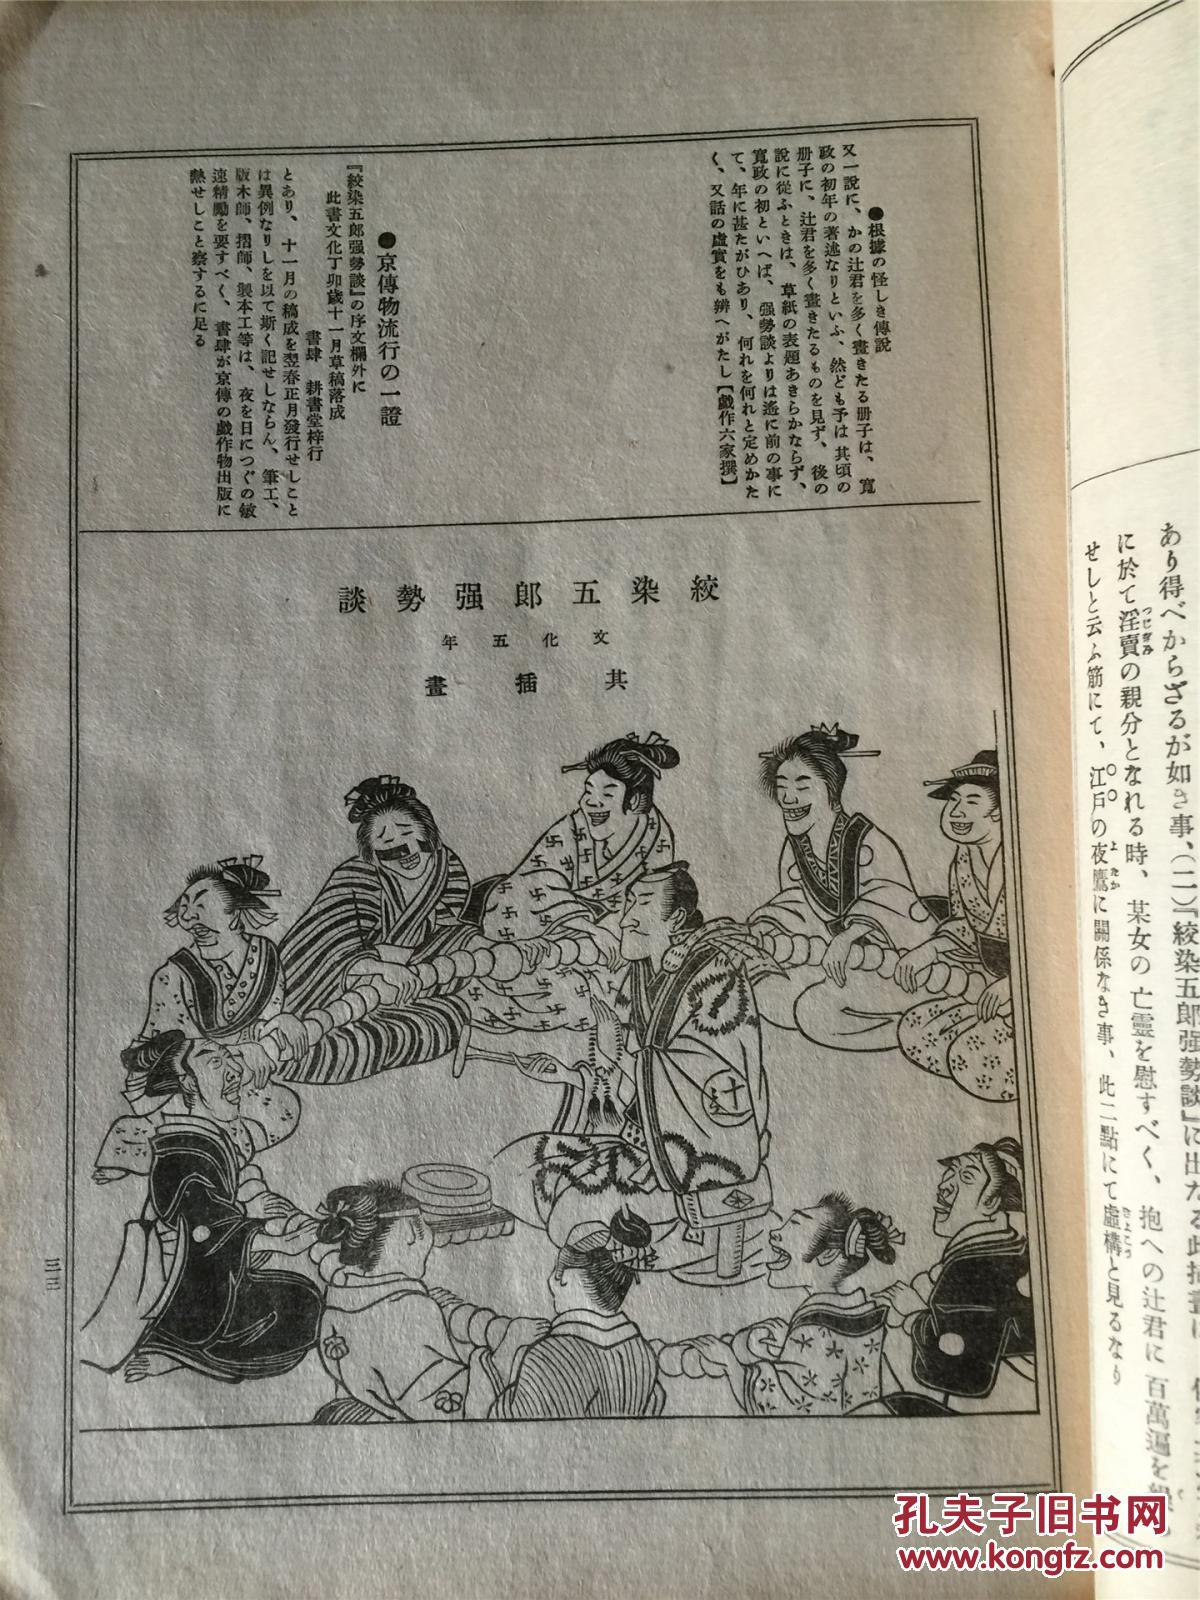 ●根據の怪しき傳說
又一說に、かの辻君を多く畫きたる册子は、寬
政の初年の著述なりといふ、然ども予は其頃の
册子に、辻君を多く畫きたるものを見ず、後の
說に從ふときは、草紙の表題あきらかならず、
寬政の初といへば、强勢談よりは遙に前の事に
て、年に甚たがひあり、何れを何れと定めかた
く、又話の虛實をも辨へがたし【戲作六家撰】
●京傳物流行の一證
『絞染五郎强勢談』の序文欄外に
此書文化丁卯歲十一月草稿落成
書肆 耕書堂梓行
とあり、十一月の稿成を翌春正月發行せしこと
は異例なりしを以て斯く記せしならん、筆工、
版木師、摺師、製本工等は、夜を日につぐの敏
速精勵を要すべく、書肆が京傳の戲作物出版に
熱せしこと察するに足る
絞染五郎强勢談
文化五年
其插畫
三三
あり得べからざるが如き事、(二)『絞染五郎强勢談』に出たる此插畫は
に於て淫賣の親分となれる時、某女の亡靈を慰すべく、抱への辻君に百萬遍を
せしと云ふ筋にて、江戶の夜鷹に關係なき事、此二點にて虛構と見るなり
孔夫子旧书网
www.kongfz.com